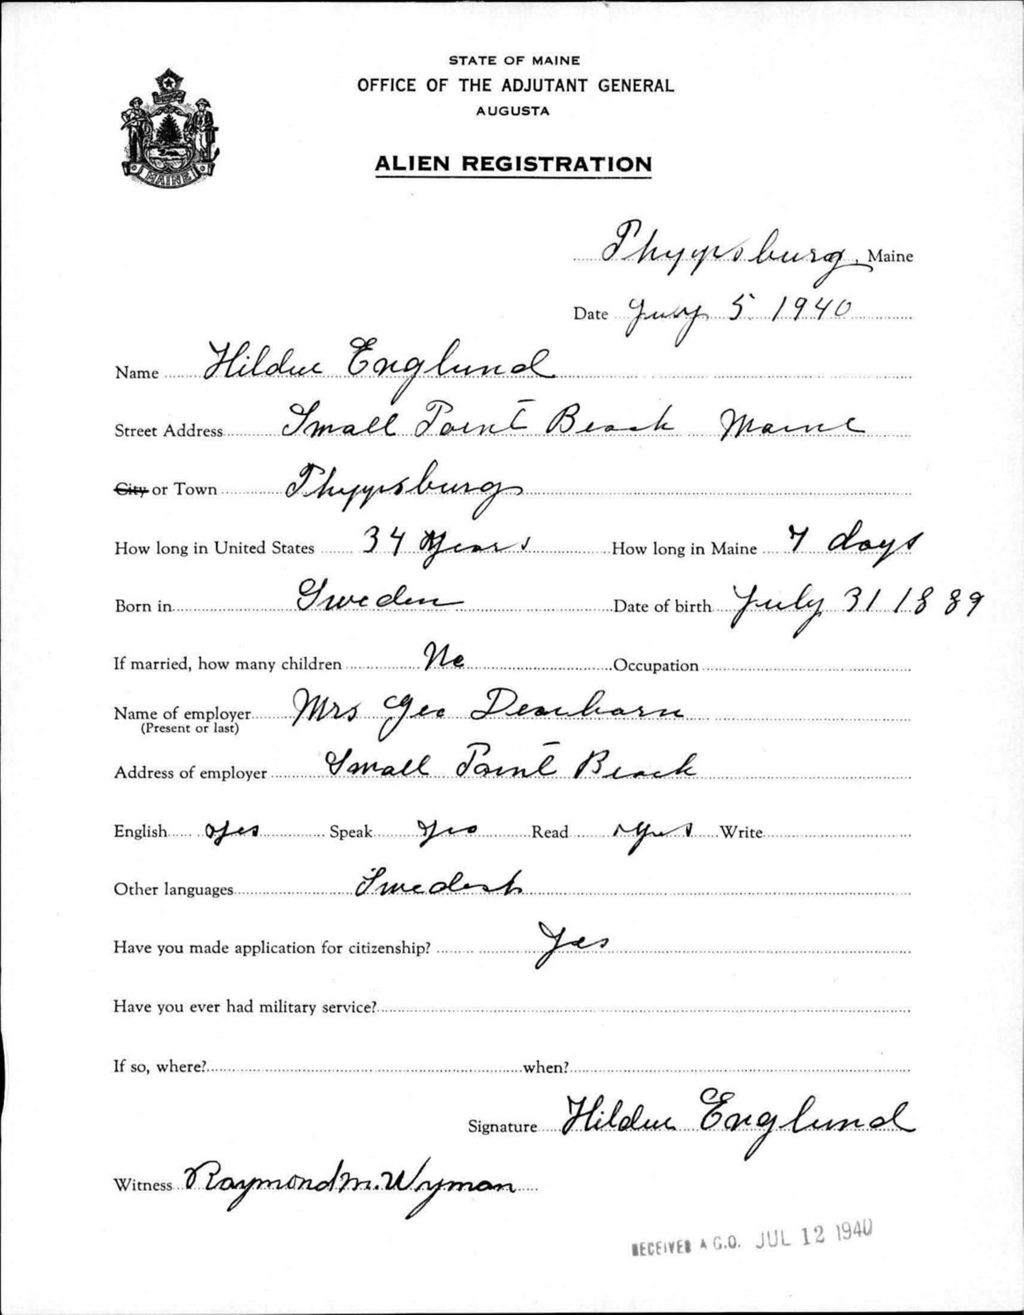 STATE OF MAINE
OFFICE OF THE ADJUTANT GENERAL
AUGUSTA
ALIEN REGISTRATION
MAINE
Phyppsburg, Maine
Date July 5 1940
Name Hildur Englund
Street Address Small Point Beach Maine
City or Town Phyppsburg
How long in United States 34 Years How long in Maine 7 days
Born in Sweden Date of birth July 31 1889
If married, how many children No Occupation
Name of employer Mrs Geo Dearborn
(Present or last)
Address of employer Small Point Beach
English yes Speak yes Read yes Write
Other languages Swedesh
Have you made application for citizenship? Yes
Have you ever had military service?
If so, where? when?
Signature Hildur Englund
Witness Raymond M. Wyman
RECEIVED A.G.O. JUL 12 1940